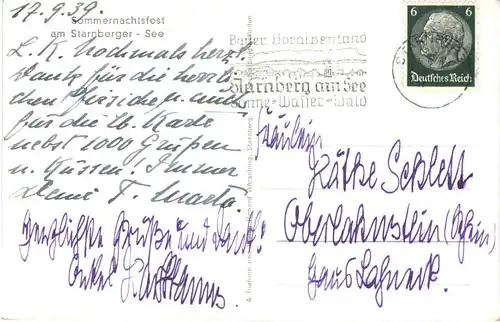 17.9.39.
Sommernachtsfest
am Starnberger - See
L. K. Nochmals herzl.
Dank für die herrli-
chen Pfirsiche u. auch
für die lb. Karte
nebst 1000 Grüßen
u. Küssen! Immer
Deine T. Marta.
Herzlichste Grüße und Dank!
Onkel
Bayer. Voralpenland
Starnberg am See
Sonne-Wasser-Wald
6
Deutsches Reich
Fräulein
Käthe Schlett
Oberlahnstein (Rhein)
Haus Lahneck.